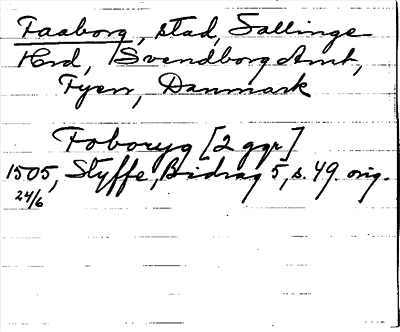 Faaborg, stad, Sallinge
Hrd, Svendborg Amt,
Fyen, Danmark
Foboryg [2 ggr]
1505, Styffe, Bidrag 5, s. 49. orig.
24/6